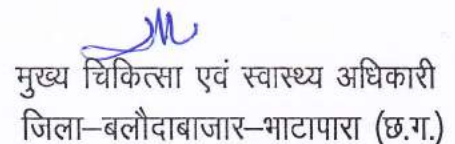 मुख्य चिकित्सा एवं स्वास्थ्य अधिकारी
जिला–बलौदाबाजार–भाटापारा (छ.ग.)